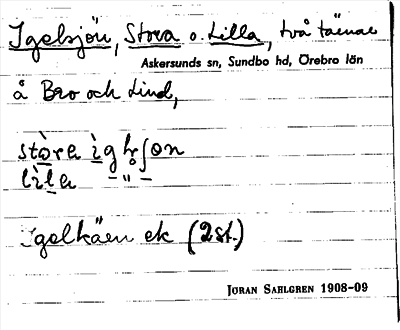 Igelsjön, Stora o. Lilla, två tärnar
Askersunds sn, Sundbo hd, Örebro län
å Bro och Lind,
stòra ìghʃon
lìla "
Igelkäen ek (2 st.)
JÖRAN SAHLGREN 1908-09